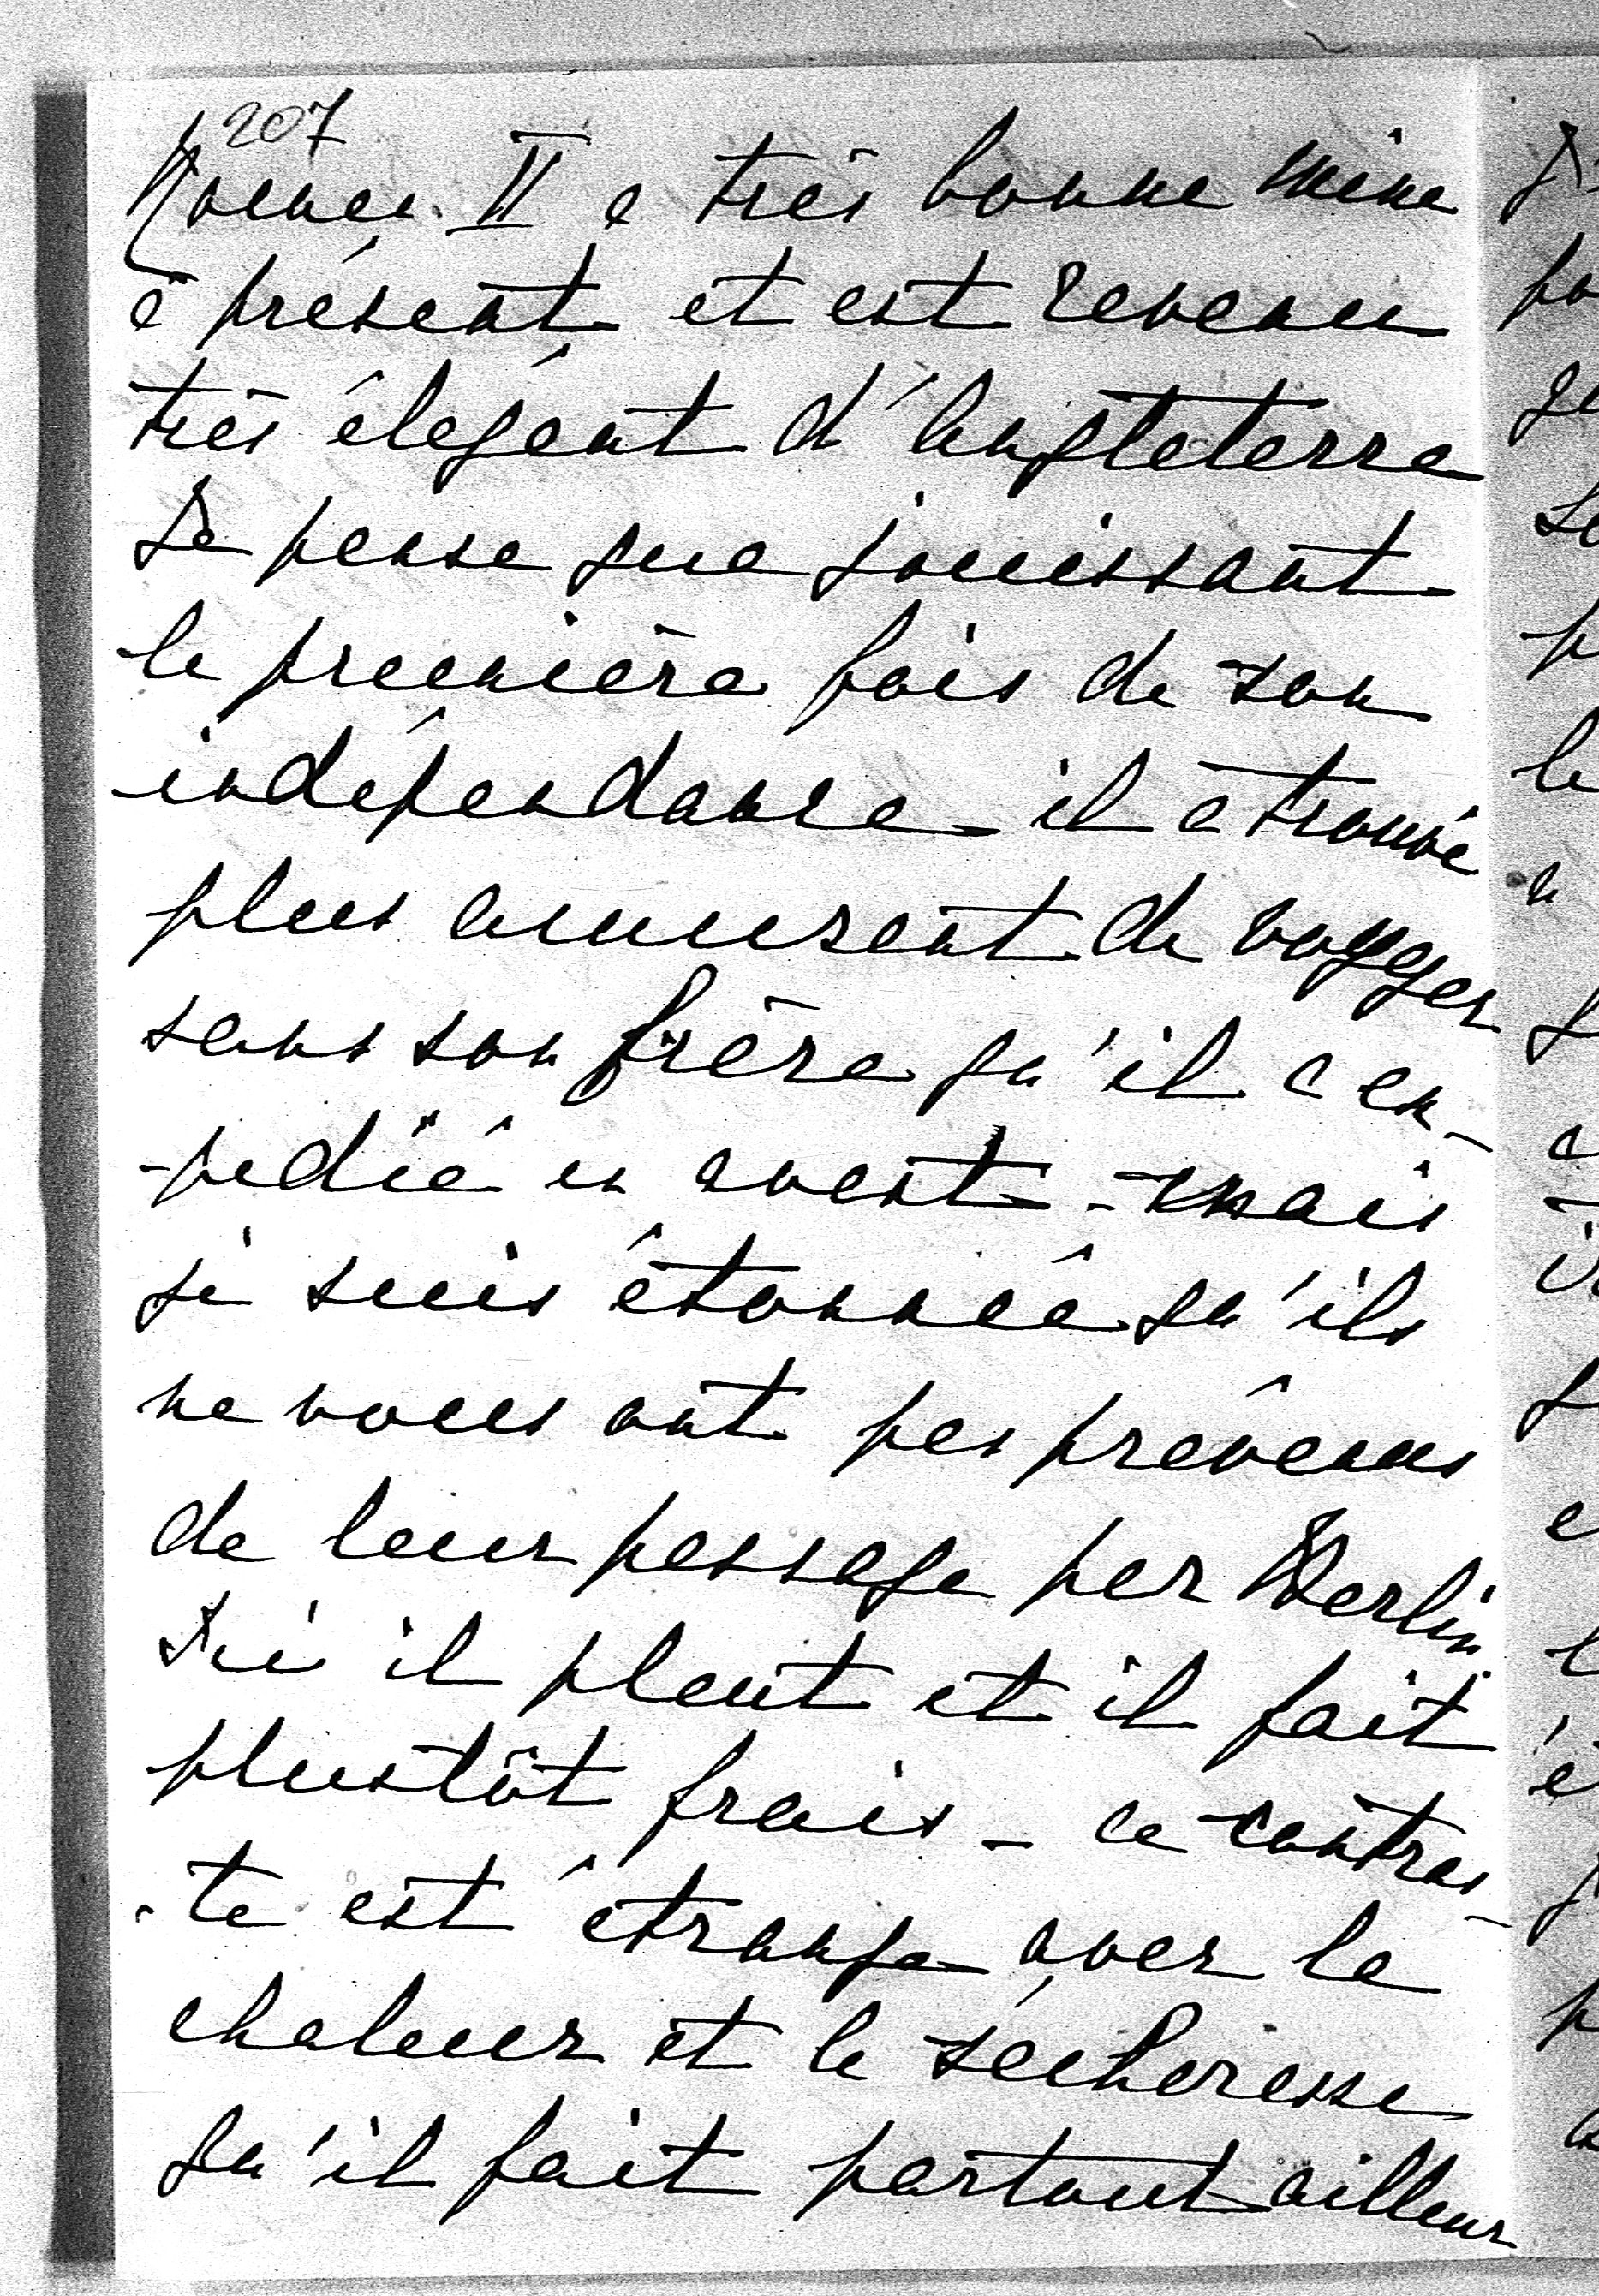 207
II a très bonne mine
à présent et est revenu
très élégant d'Angleterre
Je pense que jouissant
la première fois de son
indépendance - il a trouvé
plus amusant de voyager
sans son frère qu'il a ex-
-pedié en avant - mais
je suis étonnée qu'ils
ne vous ont pas prévenus
de leur passage par Berlin.
Ici il pleut et il fait
plustôt frais - ce contras-
-te est étrange avec la
chaleur et la sécheresse
qu'il fait partout ailleurs